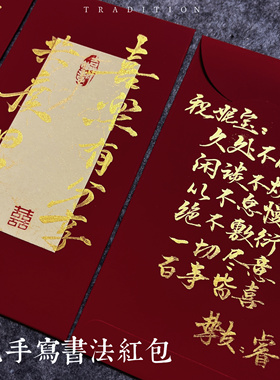 TRADITION
喜樂有分享
共度
囍
祝妮宝：
久处不
闲谈不
以不怠慢
绝不敷衍
一切尽意
百事皆喜
挚友：睿
手寫書法紅包